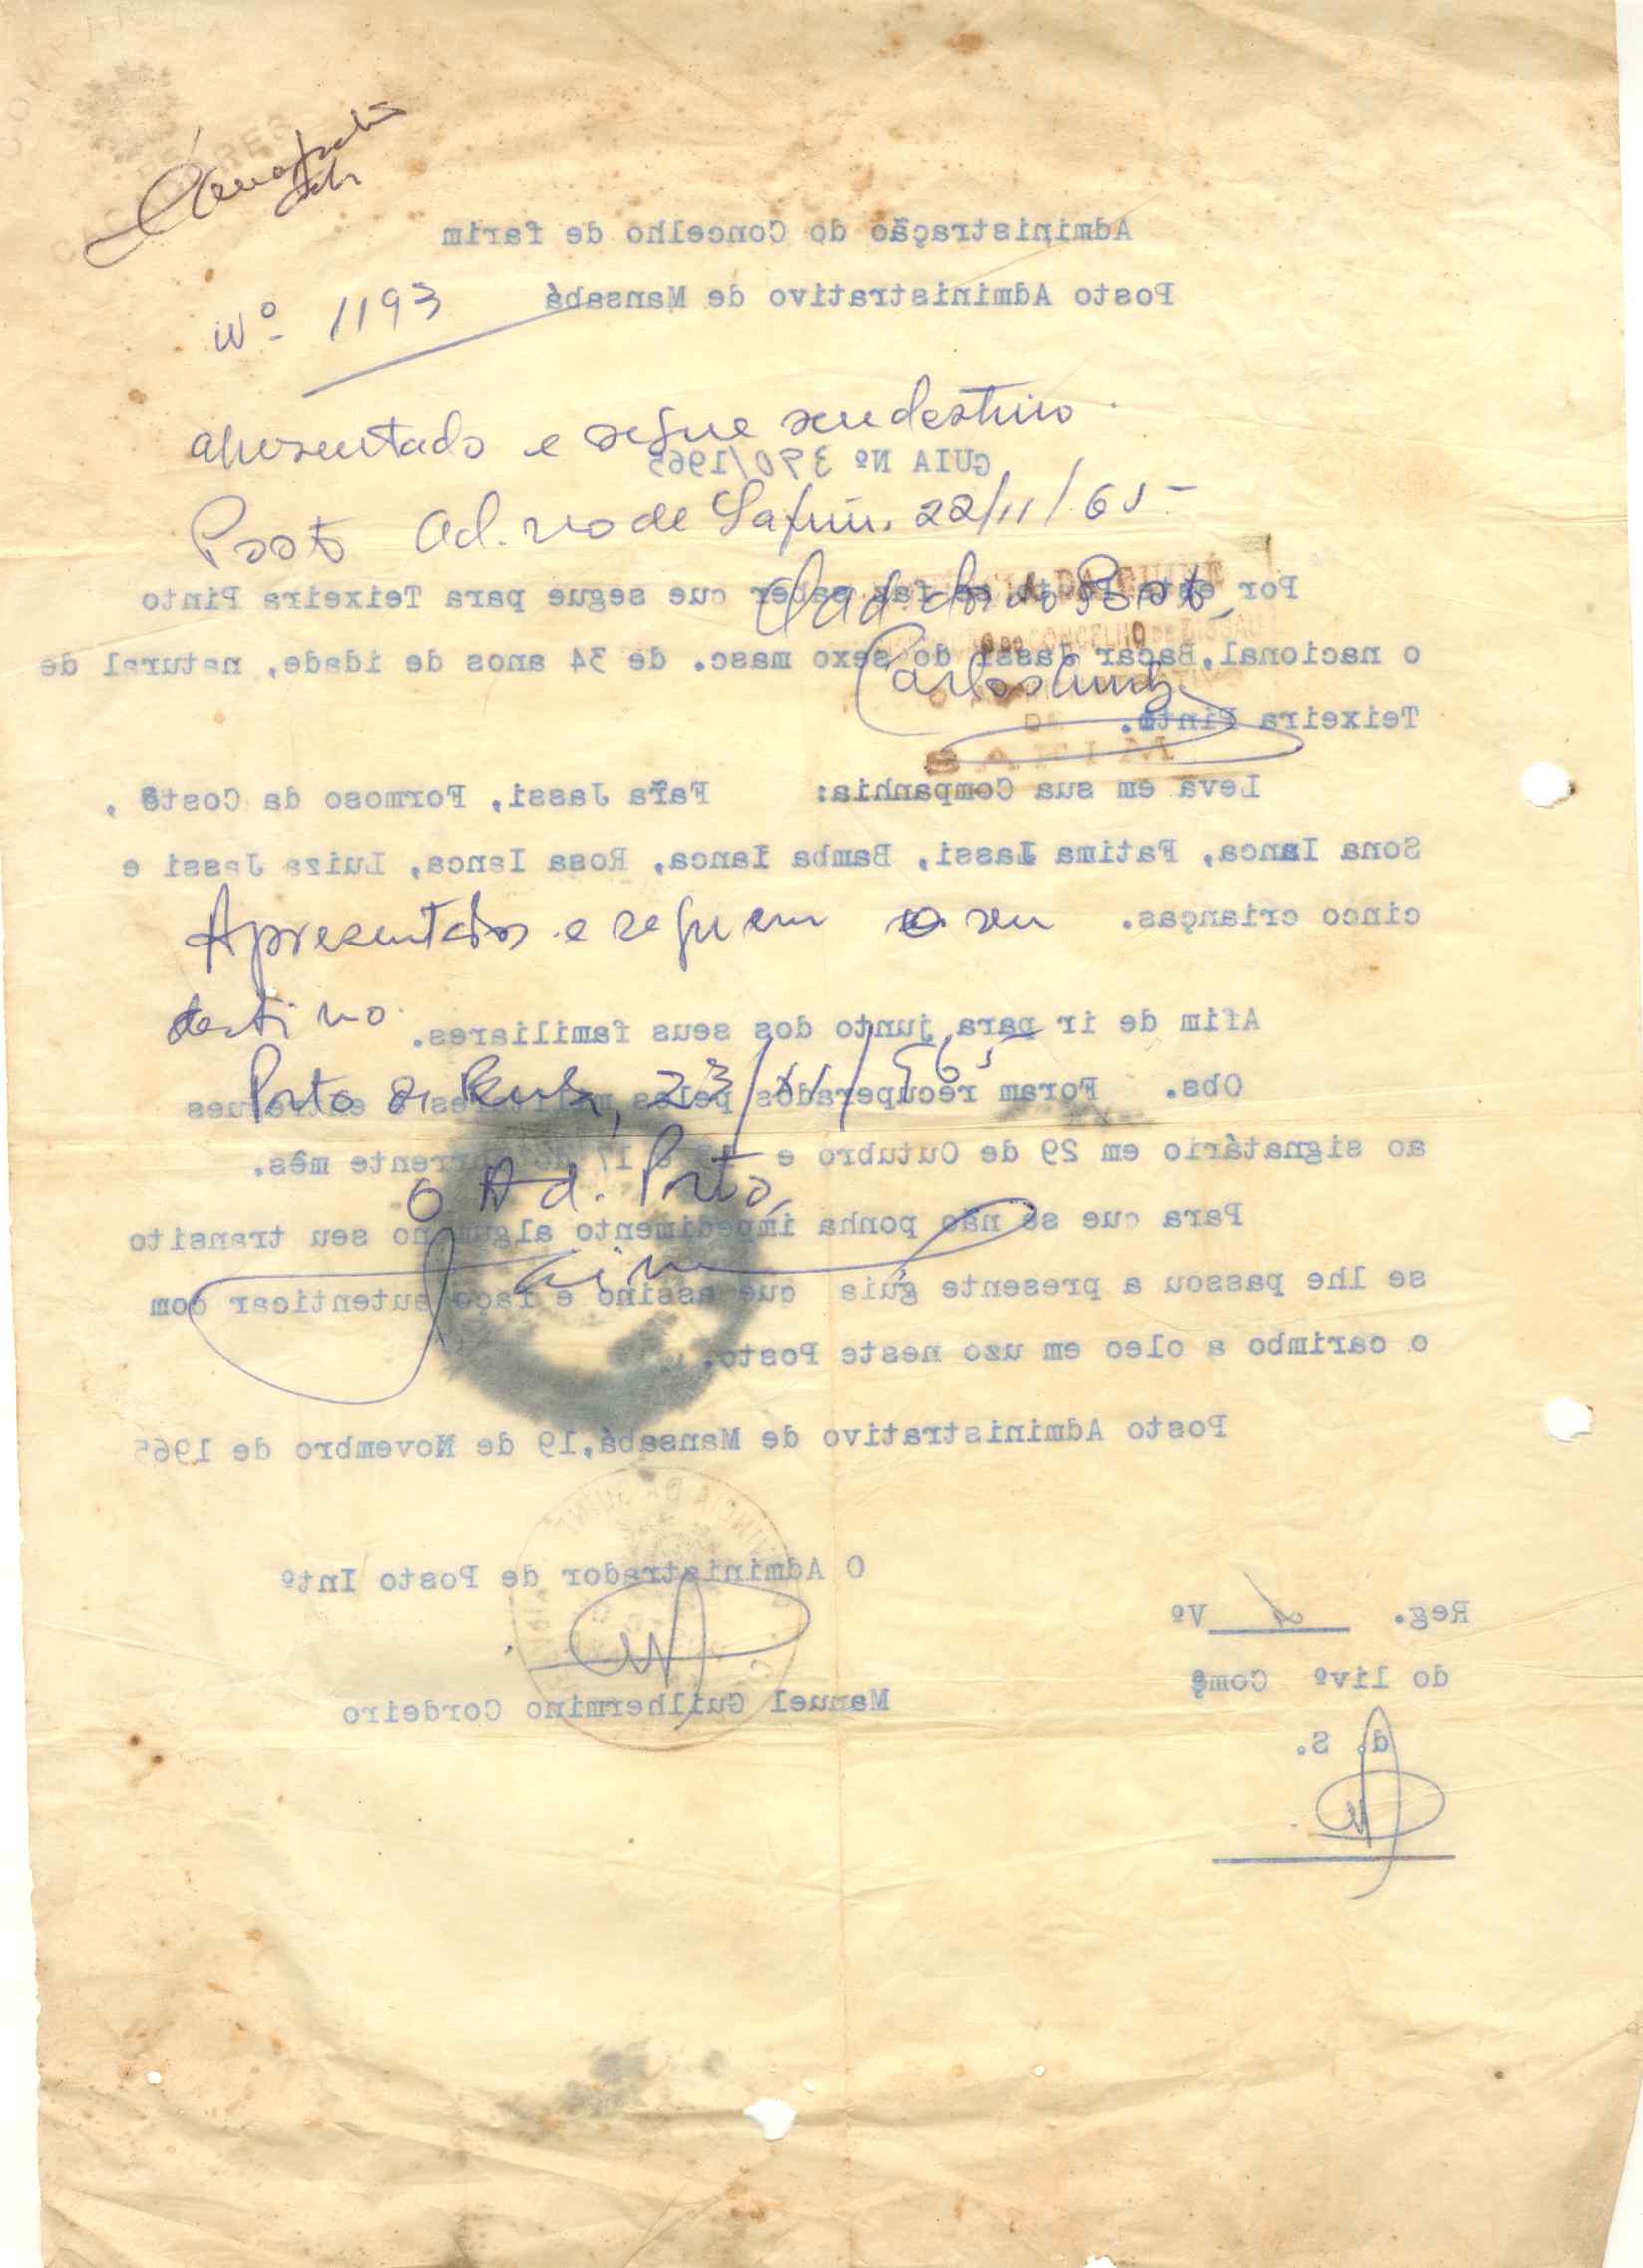 Nº 1193
Administração do Concelho de farim
Posto Administrativo de Mansabá
apresentado e segue seu destino.
GUIA Nº 390/1965
Posto Ad. vo de Safim. 22/11/65
Por esta se faz saber que segue para Teixeira Pinto
o nacional, Bacar Jassi do sexo masc. de 34 anos de idade, natural de
Teixeira Pinto.
SAFIM
Leva em sua Companhia: Fafa Jassi, Formoso da Costa,
Sona Ianca, Fatima Jassi, Bamba Ianca, Rosa Ianca, Luiza Jassi e
cinco crianças.
Apresentados e seguem o seu
destino.
Afim de ir para junto dos seus familiares.
Obs. Foram recuperados pelos entregues
ao signatário em 29 de Outubro e 17 do corrente mês.
O Ad. Posto,
Para que se não ponha impedimento algum no seu transito
se lhe passou a presente guia que assino e faço autenticar com
o carimbo a oleo em uzo neste Posto.
Posto Administrativo de Mansabá,19 de Novembro de 1965
O Administrador de Posto Intº
Manuel Guilhermino Cordeiro
Reg. Vº
do livº Comç
d. S.